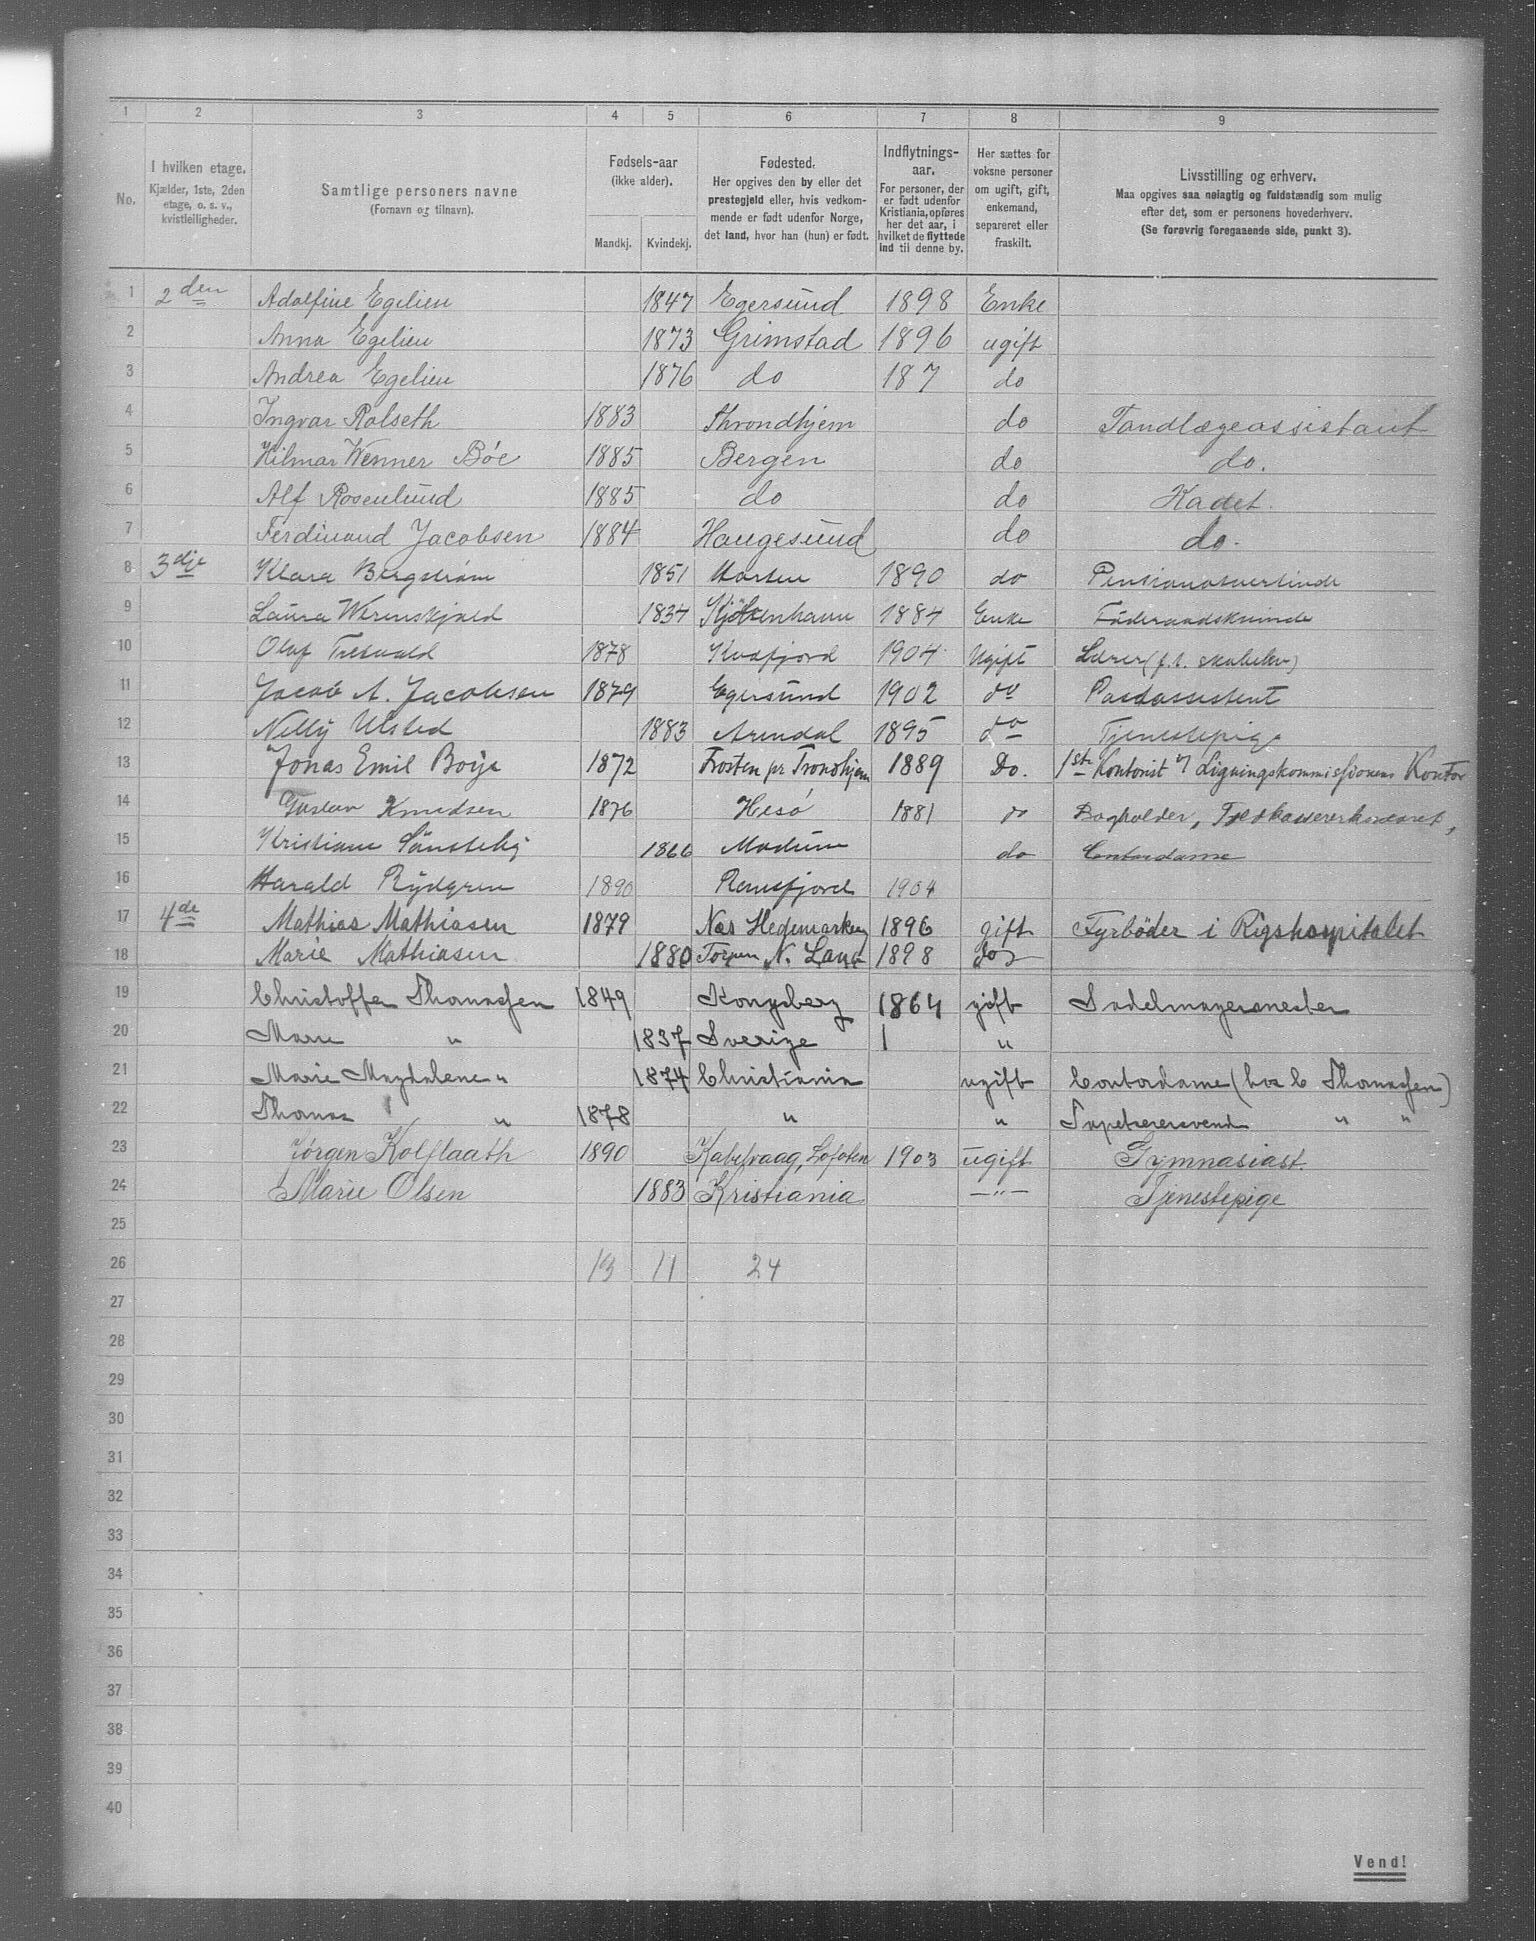 1 2 3 4 5 6 7 8 9
No.
I hvilken etage.
Kjælder, 1ste, 2den
etage, o. s. v.,
kvistleiligheder.
Samtlige personers navne
(Fornavn og tilnavn).
Fødsels-aar
(ikke alder).
Mandkj. Kvindekj.
Fødested.
Her opgives den by eller det
prestegjeld eller, hvis vedkom-
mende er født udenfor Norge,
det land, hvor han (hun) er født.
Indflytnings-
aar.
For personer, der
er født udenfor
Kristiania, opføres
her det aar, i
hvilket de flyttede
ind til denne by.
Her sættes for
voksne personer
om ugift, gift,
enkemand,
separeret eller
fraskilt.
Livsstilling og erhverv.
Maa opgives saa nøiagtig og fuldstændig som mulig
efter det, som er personens hovederhverv.
(Se forøvrig foregaaende side, punkt 3).
1 2den Adolfine Egelien 1847 Egersund 1898 Enke
2 Anna Egelien 1873 Grimstad 1896 ugift
3 Andrea Egelien 1876 do 187 do
4 Ingvar Rolseth 1883 Throndhjem do Tandlægeassistant
5 Hilmar Wenner Bøe 1885 Bergen do do.
6 Alf Rosenlund 1885 do do Kadet.
7 Ferdinand Jacobsen 1884 Haugesund do do.
8 3dje Klara Bergstrøm 1851 Horten 1890 do Pensionatsvertinde
9 Laura Werenskjold 1834 Kjøbenhavn 1884 Enke Føderaadskvinde
10 Oluf 1878 Kvæfjord 1904 Ugift Lærer (f. t. skoleelev)
11 Jacob A. Jacobsen 1879 Egersund 1902 do Postassistent
12 Nelly Ulsted 1883 Arendal 1895 do Tjenestepige
13 Jonas Emil Boye 1872 Frosten pr Trondhjem 1889 Do. 1ste Kontorist v/ Ligningskommissionens Kontor
14 Gustav Knudsen 1876 Hesø 1881 do Bogholder,
15 Kristiane Sønsteby 1866 Modum do Contordame
16 Harald Rydgren 1890 Ramfjord 1904
17 4de Mathias Mathiasen 1879 Næs Hedemarken 1896 gift Fyrbøder i Rigshospitalet
18 Marie Mathiasen 1880 Torpen N. Land 1898 do
19 Christoffer Thomassen 1849 Kongsberg 1864 gift Sadelmagermester
20 Marie " 1837 Sverige 1 "
21 Marie Magdalene " 1874 Christiania ugift Contordame (hos C Thomassen)
22 Thomas " 1878 " " Tapetserersvend " "
23 Jørgen Kolflaath 1890 Kabelvaag, Lofoten 1903 ugift Gymnasiast.
24 Marie Olsen 1883 Kristiania —"— Tjenestepige
25
26 13 11 24
27
28
29
30
31
32
33
34
35
36
37
38
39
40
Vend!